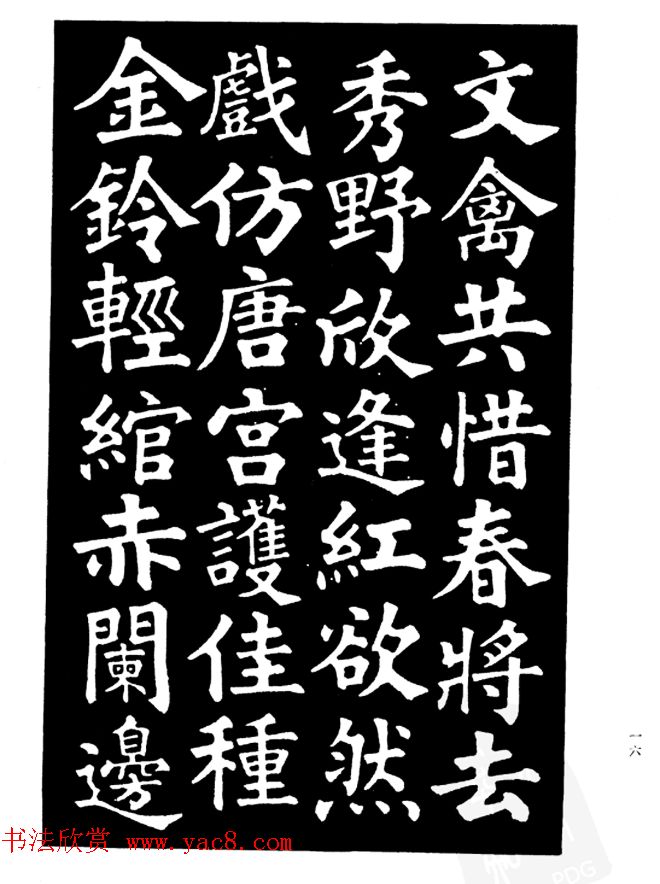 文禽共惜春將去
秀野欣逢紅欲然
戲仿唐宮護佳種
金鈴輕綰赤闌邊
一六
书法欣赏 www.yac8.com
PDG